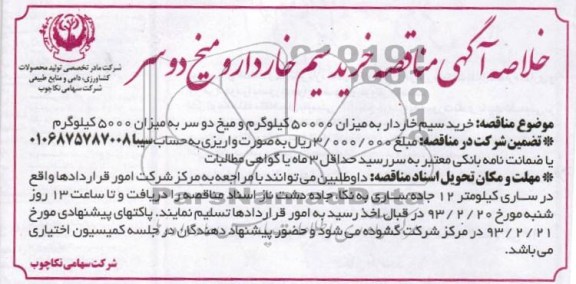 خلاصه آگهی مناقصه خرید سیم خاردار و میخ دو سر
شرکت مادر تخصصی تولید محصولات
کشاورزی، دامی و منابع طبیعی
شرکت سهامی نکاچوب
موضوع مناقصه: خرید سیم خاردار به میزان ۵۰۰۰۰ کیلوگرم و میخ دو سر به میزان ۵۰۰۰ کیلوگرم
* تضمین شرکت در مناقصه: مبلغ ۳/۰۰۰/۰۰۰ ریال به صورت واریزی به حساب سیبا ۰۱۰۶۸۷۵۷۸۷۰۰۸
یا ضمانت نامه بانکی معتبر به سررسید حداقل ۳ ماه یا گواهی مطالبات
* مهلت و مکان تحویل اسناد مناقصه: داوطلبین می‌توانند با مراجعه به مرکز شرکت امور قراردادها واقع
در ساری کیلومتر ۱۲ جاده ساری به نکا، جاده دشت ناز اسناد مناقصه را دریافت و تا ساعت ۱۳ روز
شنبه مورخ ۹۳/۲/۲۰ در قبال اخذ رسید به امور قراردادها تسلیم نمایند. پاکتهای پیشنهادی مورخ
۹۳/۲/۲۱ در مرکز شرکت گشوده می شود و حضور پیشنهاد دهندگان در جلسه کمیسیون اختیاری
می باشد.
شرکت سهامی نکاچوب
ParsNamadData